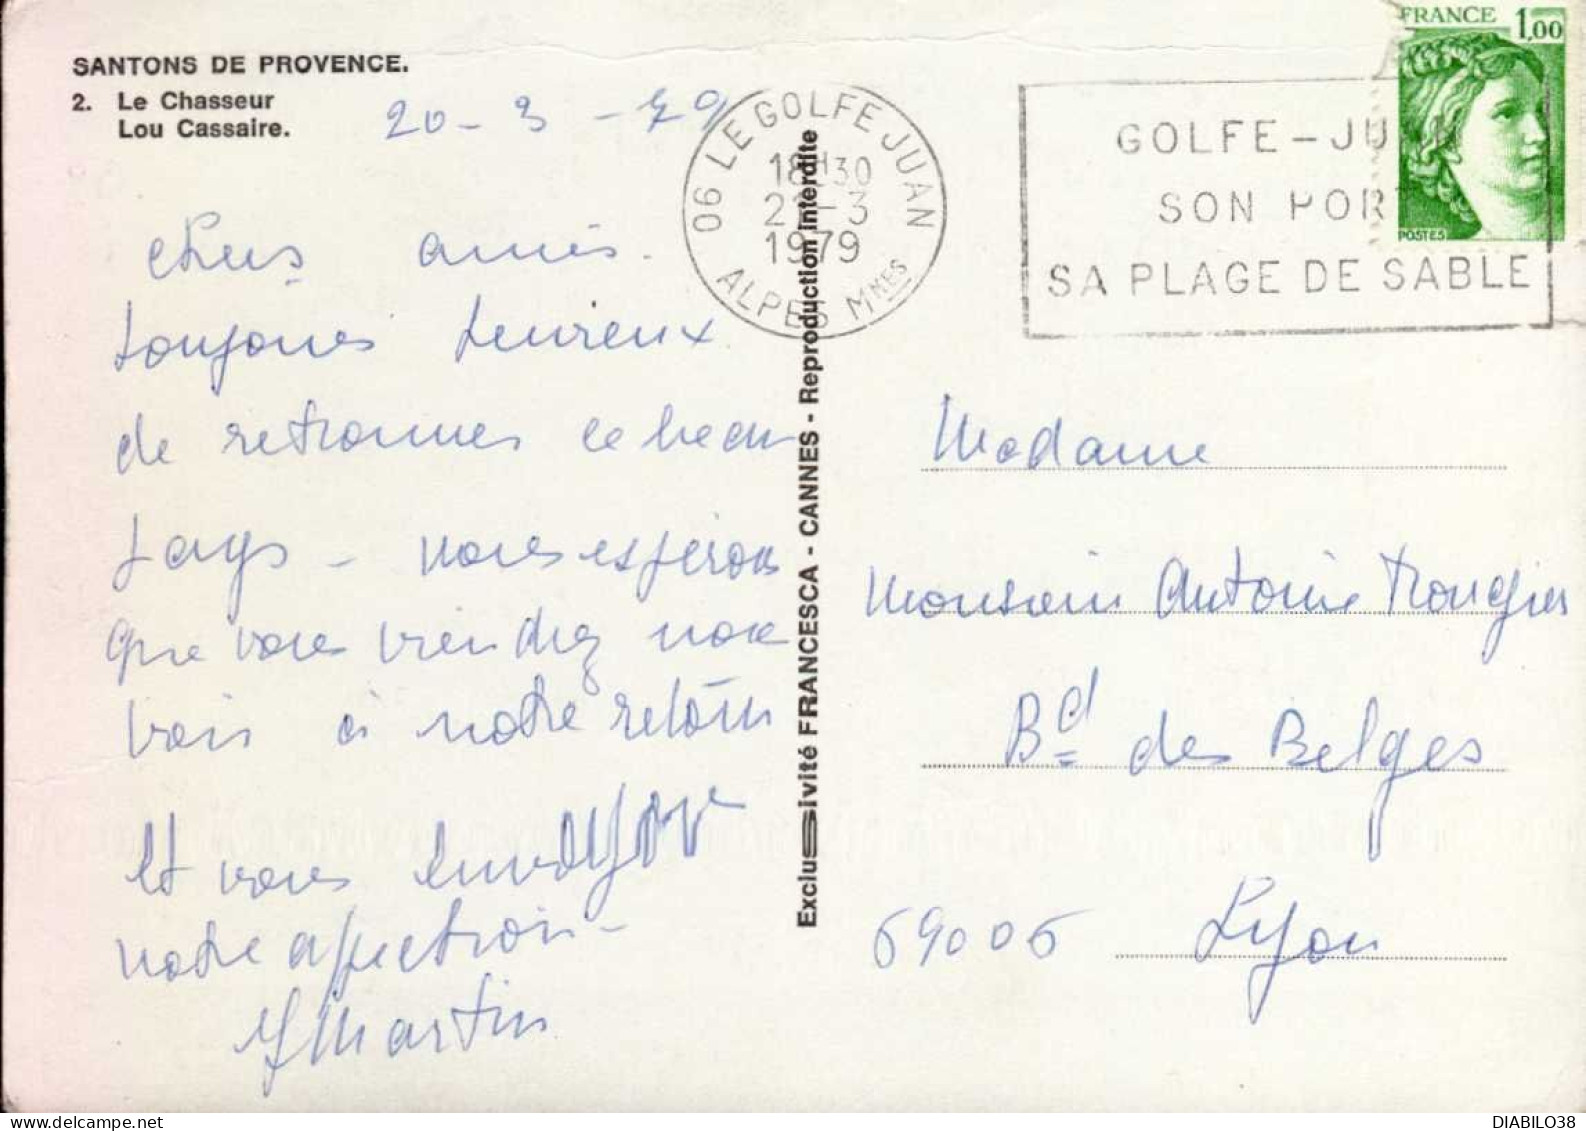 SANTONS DE PROVENCE.
2. Le Chasseur
Lou Cassaire.
20-3-79
06 LE GOLFE JUAN
18H30
2 -3
1979
ALPES MMES
GOLFE-JUAN
SON PORT
SA PLAGE DE SABLE
FRANCE 1,00
POSTES
Exclusivité FRANCESCA - CANNES - Reproduction interdite
Chers amis.
toujours heureux
de retrouver ce beau
pays - nous espérons
que vous viendrez nous
voir à notre retour
et vous
notre affection -
Martin
Madame
Monsieur Antoine
Bd des Belges
69006 Lyon
DIABILO38